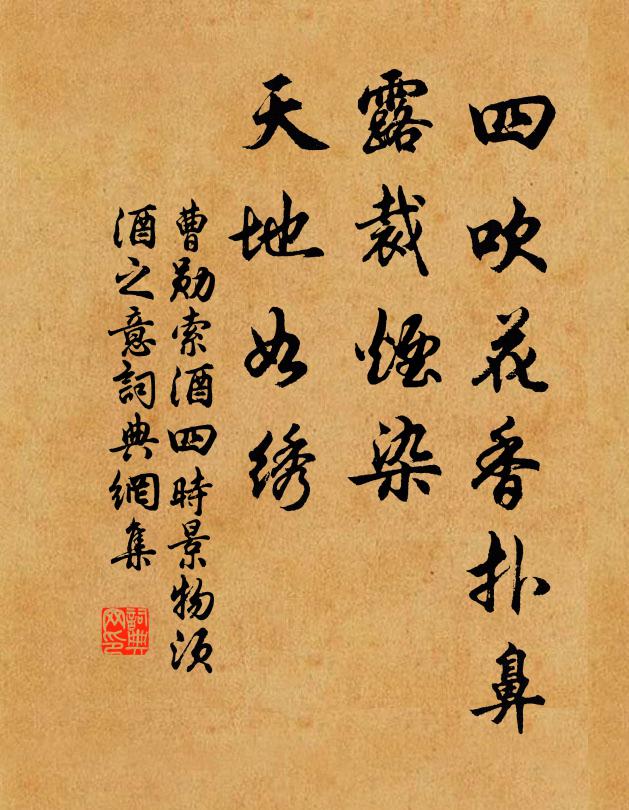 四吹花香扑鼻
露裁煙染
天地如绣
曹勛索酒四時景物須
酒之意詞典網集
詞典
网印